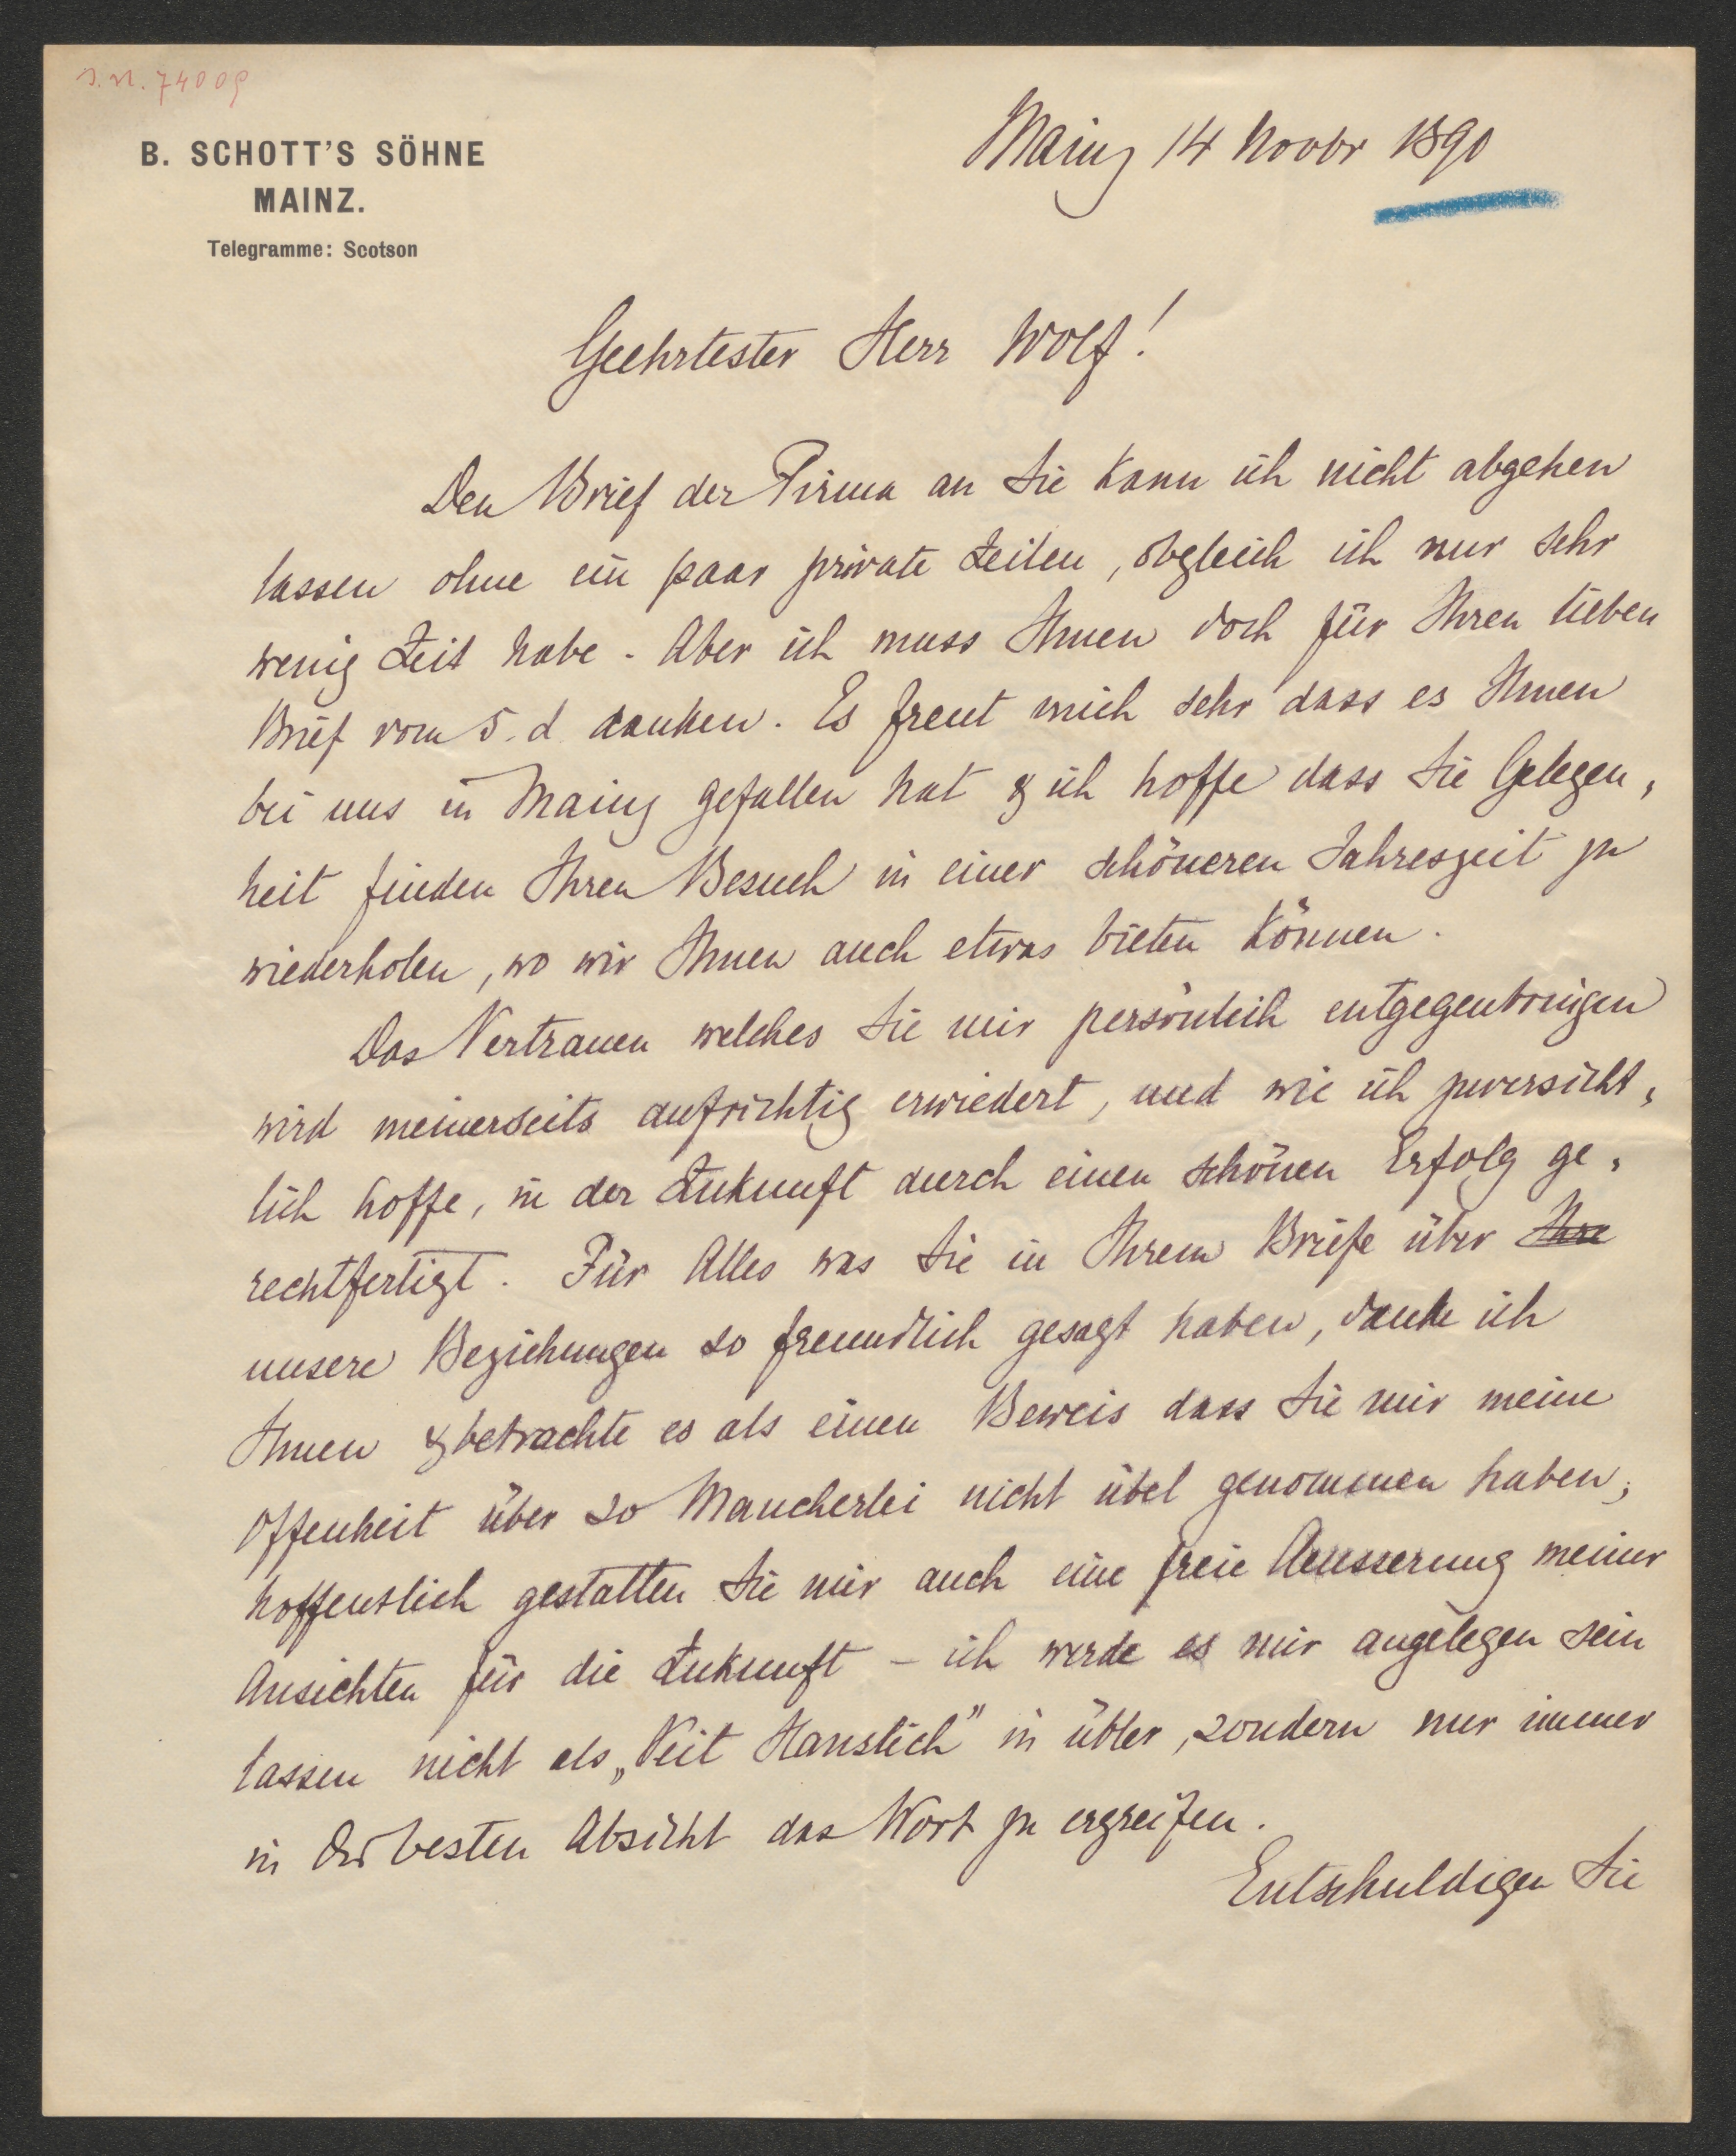 I.N. 74009
B. SCHOTT'S SÖHNE
MAINZ.
Telegramme: Scotson
Mainz 14 Novbr 1890
Geehrtester Herr Wolf!
Den Brief der Firma an Sie kann ich nicht abgehen
lassen ohne ein paar private Zeilen, obgleich ich nur sehr
wenig Zeit habe. Aber ich muss Ihnen doch für Ihren lieben
Brief vom 5. d danken. Es freut mich sehr dass es Ihnen
bei uns in Mainz gefallen hat & ich hoffe dass Sie Gelegen,
heit finden Ihren Besuch in einer schöneren Jahreszeit zu
wiederholen, wo wir Ihnen auch etwas bieten können.
Das Vertrauen welches Sie mir persönlich entgegenbringen
wird meinerseits aufrichtig erwiedert, und wie ich zuversicht,
lich hoffe, in der Zukunft durch einen schönen Erfolg ge,
rechtfertigt. Für Alles was Sie in Ihrem Briefe über Ihre
unsere Beziehungen so freundlich gesagt haben, danke ich
Ihnen & betrachte es als einen Beweis dass Sie mir meine
Offenheit über so Mancherlei nicht übel genommen haben;
hoffentlich gestatten Sie mir auch eine freie Aeusserung meiner
Ansichten für die Zukunft – ich werde es mir angelegen sein
lassen nicht als „Veit Hanslich" in übler, sondern nur immer
in der besten Absicht das Wort zu ergreifen.
Entschuldigen Sie